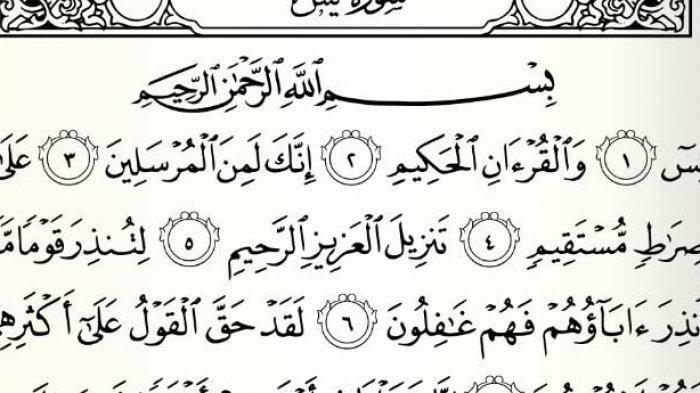 سورة يس
بِسْمِ ٱللَّهِ ٱلرَّحْمَٰنِ ٱلرَّحِيمِ
يسٓ ١ وَٱلْقُرْءَانِ ٱلْحَكِيمِ ٢ إِنَّكَ لَمِنَ ٱلْمُرْسَلِينَ ٣ عَلَىٰ
صِرَٰطٍ مُّسْتَقِيمٍ ٤ تَنزِيلَ ٱلْعَزِيزِ ٱلرَّحِيمِ ٥ لِتُنذِرَ قَوْمًا مَّا
نذِرَ ءَابَآؤُهُمْ فَهُمْ غَٰفِلُونَ ٦ لَقَدْ حَقَّ ٱلْقَوْلُ عَلَىٰٓ أَكْثَرِهِ